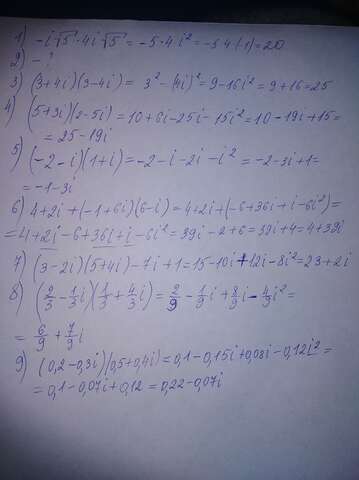 1) -i√5 · 4i√5 = -5·4i² = -5·4·(-1) = 20
2) - ?
3) (3+4i)(3-4i) = 3² - (4i)² = 9-16i² = 9+16 = 25
4) (5+3i)(2-5i) = 10+6i-25i-15i² = 10-19i+15 =
= 25-19i
5) (-2-i)(1+i) = -2-i-2i-i² = -2-3i+1 =
= -1-3i
6) 4+2i+(-1+6i)(6-i) = 4+2i+(-6+36i+i-6i²) =
= 4+2i-6+36i+i-6i² = 39i-2+6 = 39i+4 = 4+39i
7) (3-2i)(5+4i)-7i+1 = 15-10i+12i-8i² = 23+2i
8) (2/3 - 1/3 i)(1/3 + 4/3 i) = 2/9 - 1/9 i + 8/9 i - 4/9 i² =
= 6/9 + 7/9 i
9) (0,2-0,3i)(0,5+0,4i) = 0,1-0,15i+0,08i-0,12i² =
= 0,1-0,07i+0,12 = 0,22-0,07i